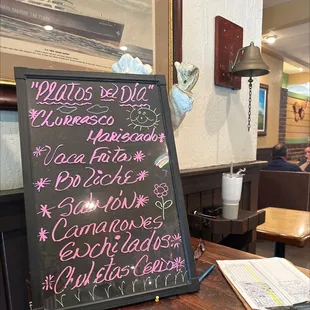 "Platos del Día"
Churrasco
Mariscado
* Vaca Frita *
* Boliche *
* Salmón *
* Camarones *
Enchilados *
* Chuletas Cerdo *